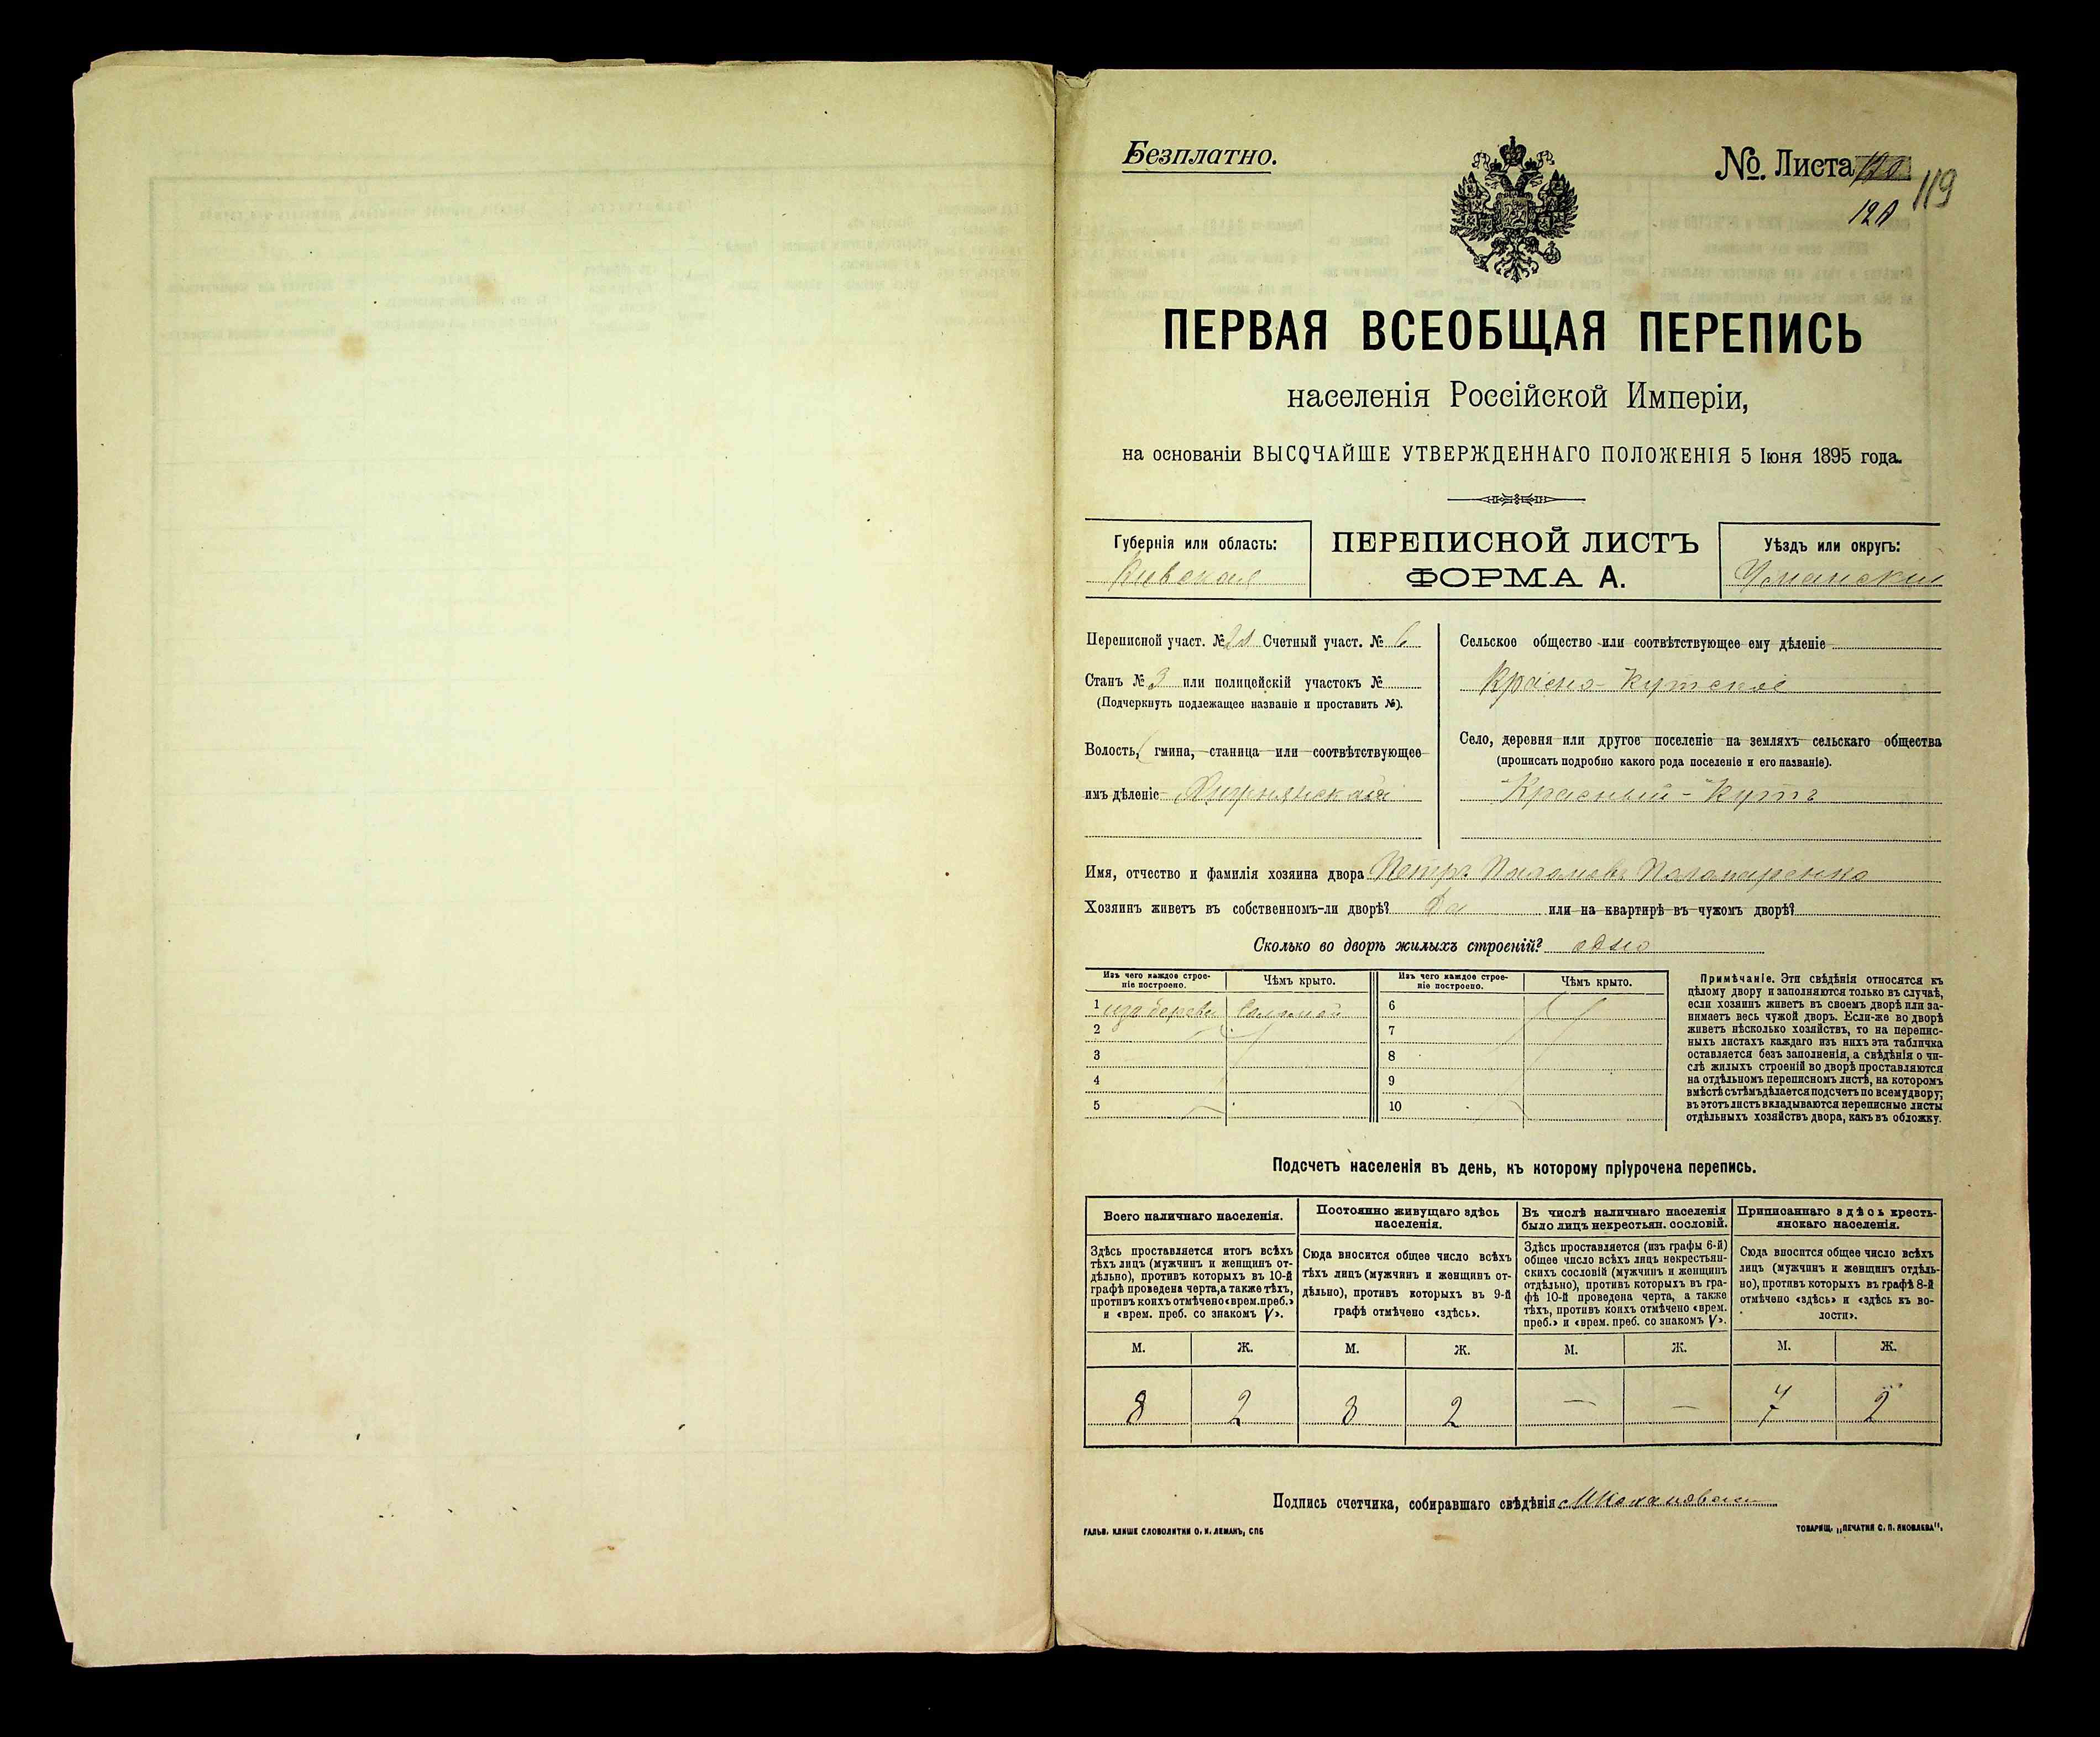 Безплатно.
№. Листа
120
119
ПЕРВАЯ ВСЕОБЩАЯ ПЕРЕПИСЬ
населенія Россійской Имперіи,
на основаніи ВЫСОЧАЙШЕ УТВЕРЖДЕННАГО ПОЛОЖЕНІЯ 5 Іюня 1895 года.
Губернія или область:
Кивская
ПЕРЕПИСНОЙ ЛИСТЪ
ФОРМА А.
Уѣздъ или округъ:
Уманский
Переписной участ. № Счетный участ. № 6
Станъ № 3 или полицейскій участокъ №
(Подчеркнуть подлежащее названіе и проставить №).
Волость, гмина, станица или соотвѣтствующее
имъ дѣленіе
Сельское общество или соотвѣтствующее ему дѣленіе
Красно-Кутское
Село, деревня или другое поселеніе на земляхъ сельскаго общества
(прописать подробно какого рода поселеніе и его названіе).
Красный-Кутъ
Имя, отчество и фамилія хозяина двора Петръ Паламаренко
Хозяинъ живетъ въ собственномъ-ли дворѣ? Да или на квартирѣ въ чужомъ дворѣ?
Сколько во дворѣ жилыхъ строеній? одно
Изъ чего каждое строе-
ніе построено.
Чѣмъ крыто.
Изъ чего каждое строе-
ніе построено.
Чѣмъ крыто.
1 изъ дерева Соломой 6
2 7
3 8
4 9
5 10
Примѣчаніе. Эти свѣдѣнія относятся къ
цѣлому двору и заполняются только въ случаѣ,
если хозяинъ живетъ въ своемъ дворѣ или за-
нимаетъ весь чужой дворъ. Если-же во дворѣ
живетъ нѣсколько хозяйствъ, то на перепис-
ныхъ листахъ каждаго изъ нихъ эта табличка
оставляется безъ заполненія, а свѣдѣнія о чи-
слѣ жилыхъ строеній во дворѣ проставляются
на отдѣльномъ переписномъ листѣ, на которомъ
вмѣстѣ съ тѣмъ дѣлается подсчетъ по всему двору;
въ этотъ листъ вкладываются переписные листы
отдѣльныхъ хозяйствъ двора, какъ въ обложку.
Подсчетъ населенія въ день, къ которому пріурочена перепись.
Всего наличнаго населенія.
Здѣсь проставляется итогъ всѣхъ
тѣхъ лицъ (мужчинъ и женщинъ от-
дѣльно), противъ которыхъ въ 10-й
графѣ проведена черта, а также тѣхъ,
противъ коихъ отмѣчено «врем. преб.»
и «врем. преб. со знакомъ V».
Постоянно живущаго здѣсь
населенія.
Сюда вносится общее число всѣхъ
тѣхъ лицъ (мужчинъ и женщинъ от-
дѣльно), противъ которыхъ въ 9-й
графѣ отмѣчено «здѣсь».
Въ числѣ наличнаго населенія
было лицъ некрестьян. сословій.
Здѣсь проставляется (изъ графы 6-й)
общее число всѣхъ лицъ некрестьян-
скихъ сословій (мужчинъ и женщинъ
отдѣльно), противъ которыхъ въ гра-
фѣ 10-й проведена черта, а также
тѣхъ, противъ коихъ отмѣчено «врем.
преб.» и «врем. преб. со знакомъ V».
Приписаннаго здѣсь кресть-
янскаго населенія.
Сюда вносится общее число всѣхъ
лицъ (мужчинъ и женщинъ отдѣль-
но), противъ которыхъ въ графѣ 8-й
отмѣчено «здѣсь» и «здѣсь къ во-
лости».
М. Ж. М. Ж. М. Ж. М. Ж.
8 2 8 2 — — 7 2
Подпись счетчика, собиравшаго свѣдѣнія
ГАЛЬВ. КЛИШЕ СЛОВОЛИТНИ О. И. ЛЕМАНЪ, СПБ
ТОВАРИЩ. „ПЕЧАТНЯ С. П. ЯКОВЛЕВА".